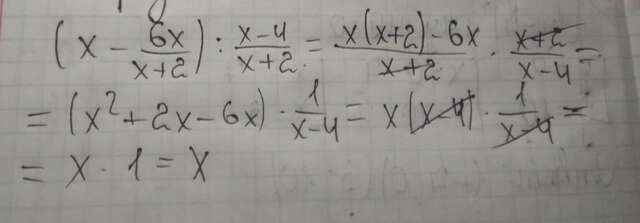 (x - 6x/(x+2)) : (x-4)/(x+2) = (x(x+2)-6x)/(x+2) · (x+2)/(x-4) =
= (x²+2x-6x) · 1/(x-4) = x(x-4) · 1/(x-4) =
= x · 1 = x